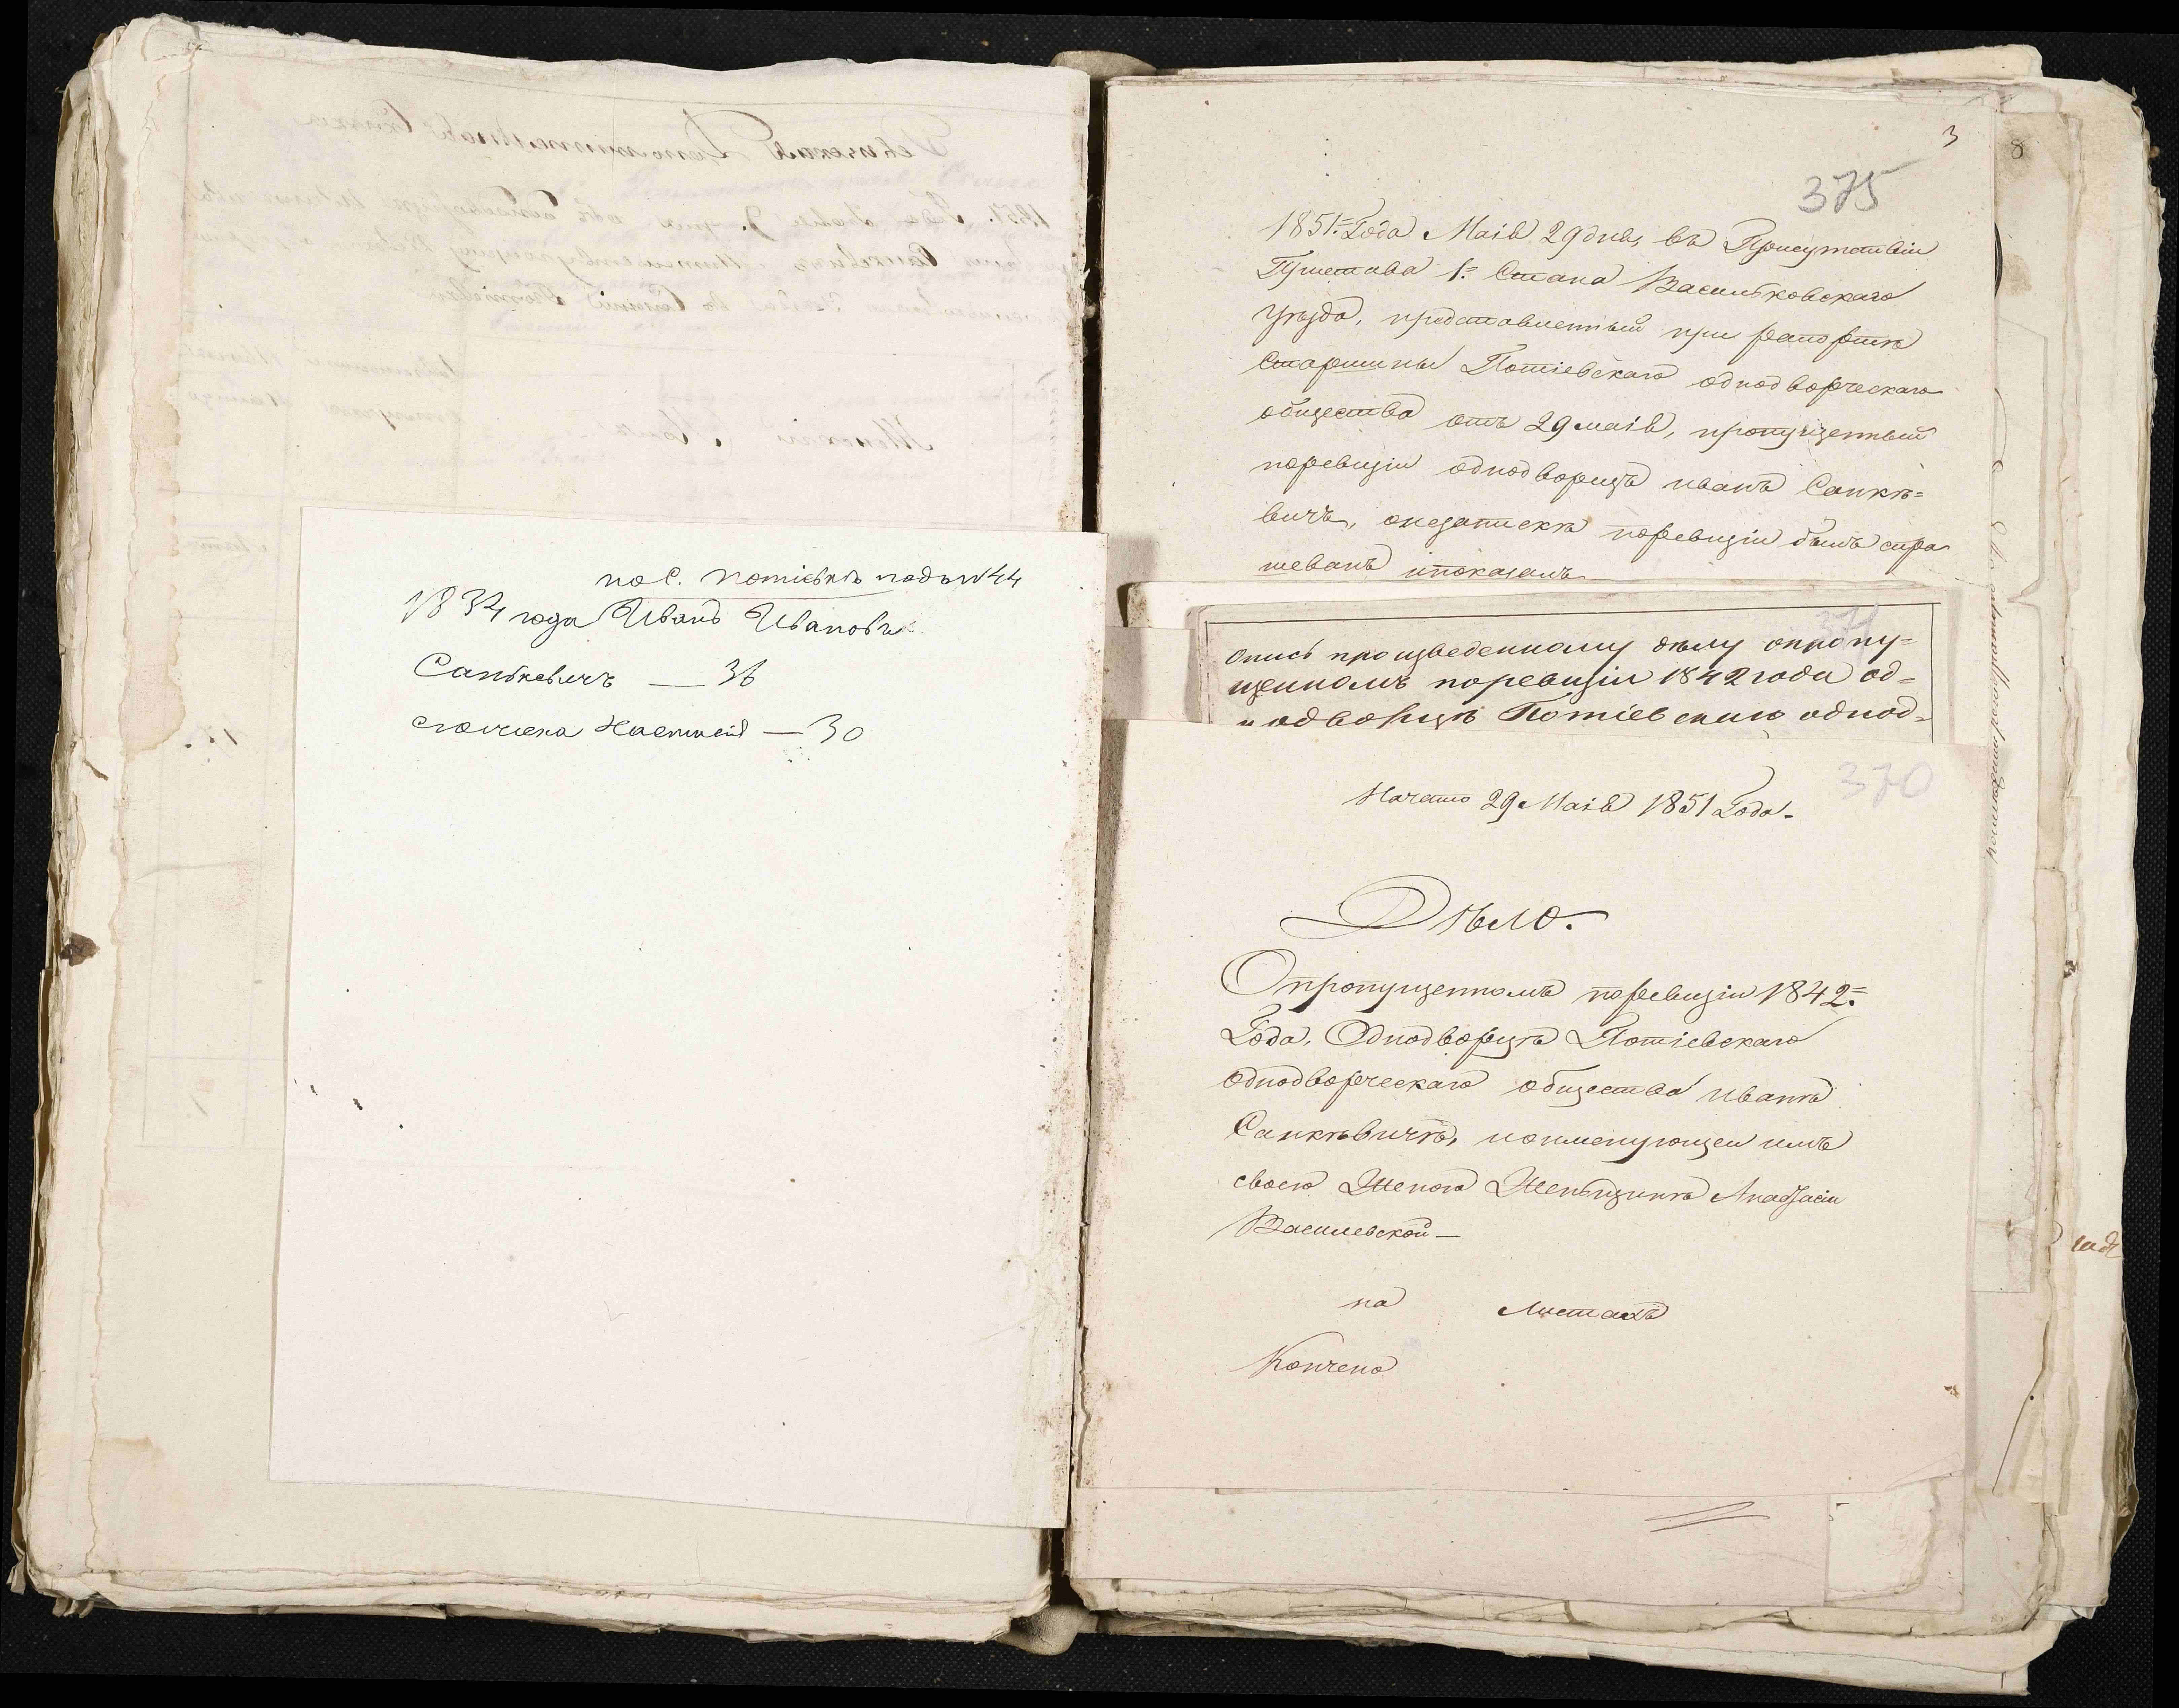 по С. Потіевкѣ подъ №44
1834 года Иванъ Ивановъ
Санькевичъ — 36
Настасія — 30
3
8
375
1851. Года Маія 29 дня, въ Присутствіи
Пристава 1. Стана Васильковскаго
уѣзда, представленный при рапортѣ
Старшины Потіевскаго однодворческаго
общества отъ 29 маія, пропущенный
поревизіи однодворецъ иванъ Санкѣ=
вичъ, онезапискѣ поревизіи былъ спра
шеванъ ипоказалъ
опись произведенному дѣлу опропу=
щенномъ поревизіи 1842 года од=
нодворцѣ Потіевскаго однод=
370
Начато 29 Маія 1851 Года.
Дѣло.
Опропущенномъ поревизіи 1842.=
Года, Однодворцѣ Потіевскаго
однодворческаго общества иванѣ
Санкѣвичѣ, иоименующеи имъ
своею Женою Женьщинѣ Анастасіи
Василевской —
на Листахъ
Кончено